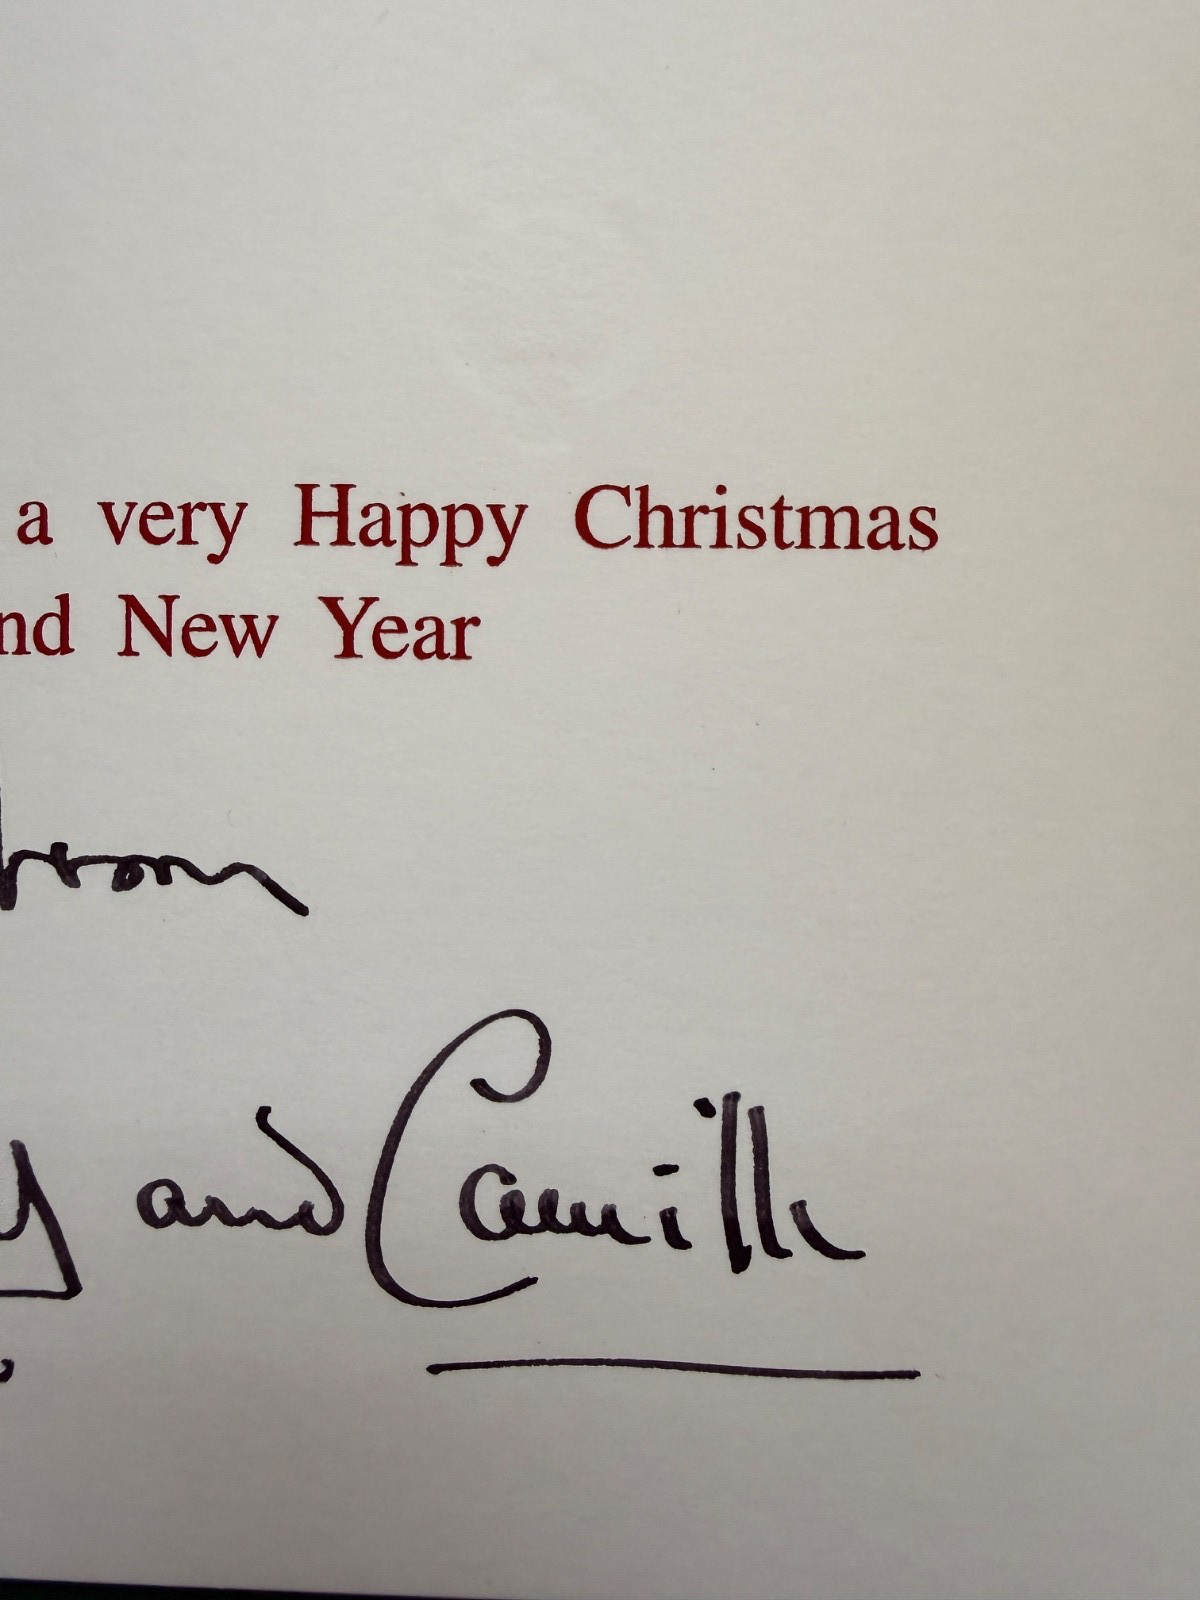 a very Happy Christmas
nd New Year
from
and Camilla